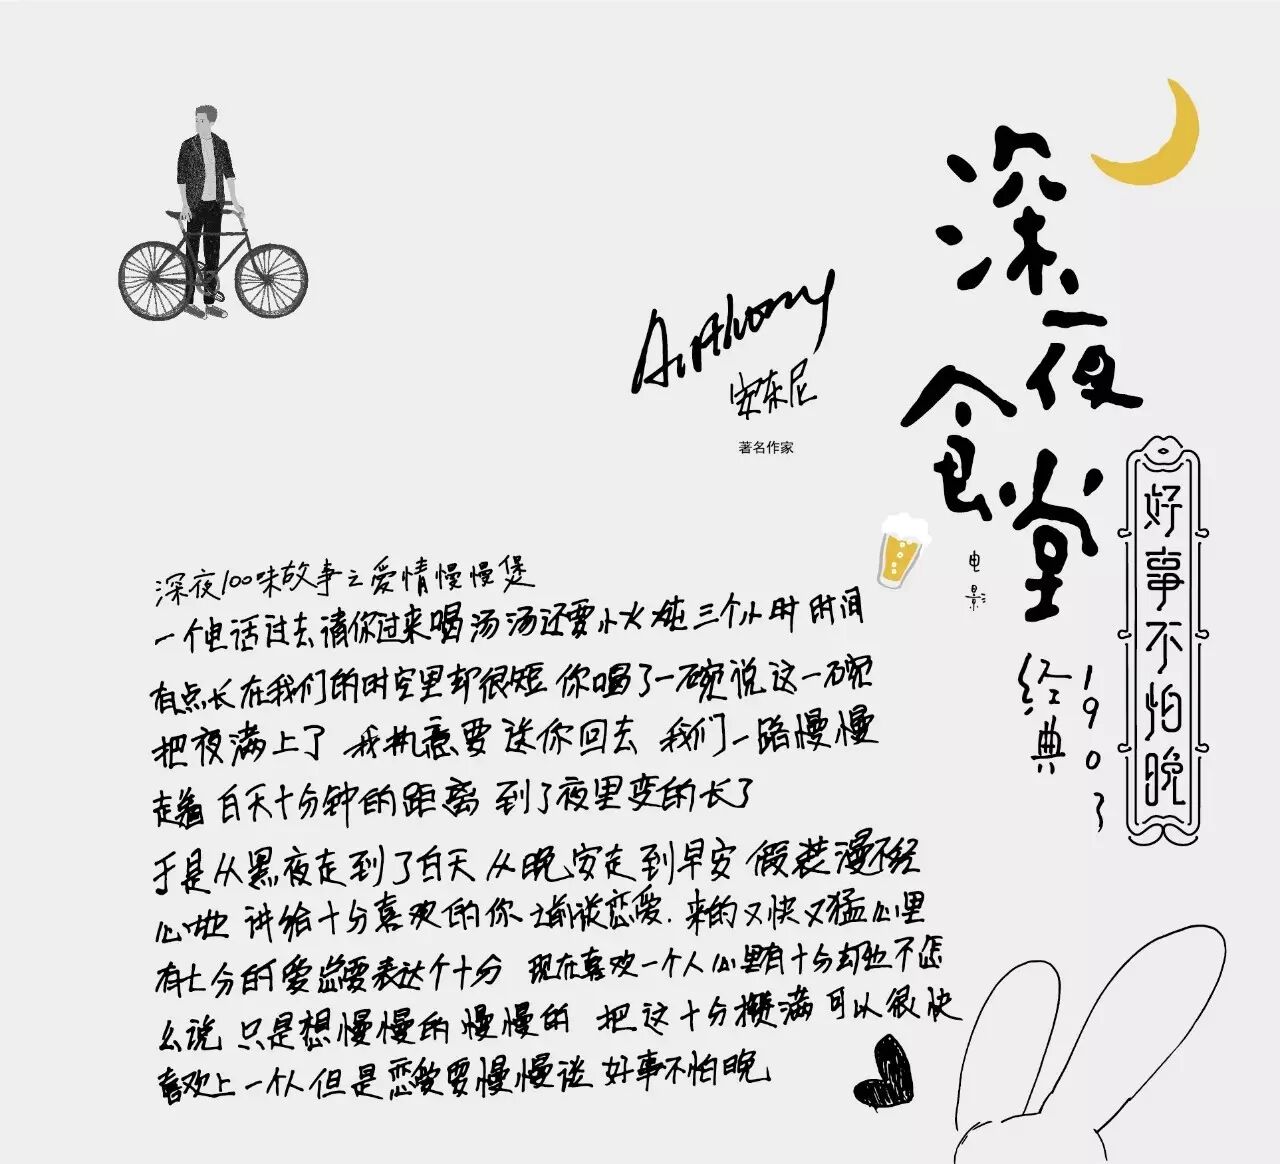 深夜食堂
电影
经典1903
好事不怕晚
Anthony
安东尼
著名作家
深夜100味故事之爱情慢慢煲
一个电话过去请你过来喝汤汤还要小火炖三个小时时间
有点长在我们的时空里却很短 你喝了一碗说这一碗
把夜满上了 我执意要送你回去 我们一路慢慢
走着 白天十分钟的距离 到了夜里变的长了
于是从黑夜走到了白天 从晚安走到早安 假装漫不经
心地 讲给十分喜欢的你 之前谈恋爱.来的又快又猛心里
有七分的爱总要表达个十分 现在喜欢一个人心里有十分却也不怎
么说 只是想慢慢的慢慢的 把这十分攒满 可以很快
喜欢上一个人但是恋爱要慢慢谈 好事不怕晚